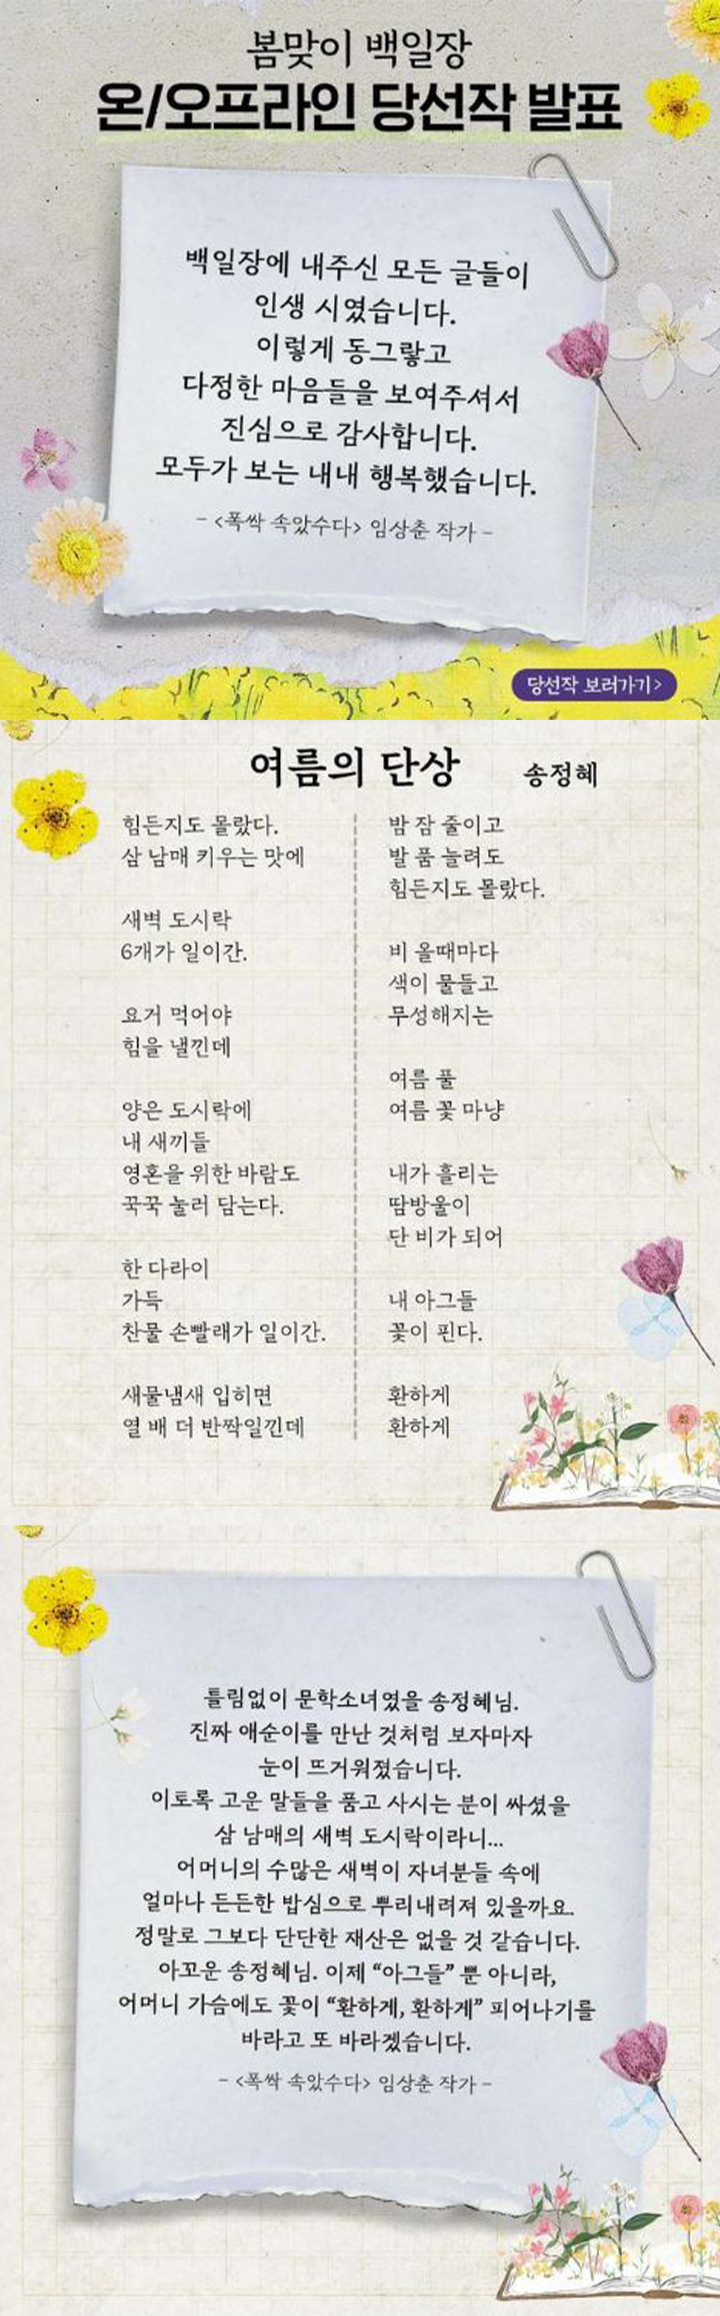 봄맞이 백일장
온/오프라인 당선작 발표
백일장에 내주신 모든 글들이
인생 시였습니다.
이렇게 동그랗고
다정한 마음들을 보여주셔서
진심으로 감사합니다.
모두가 보는 내내 행복했습니다.
- <폭싹 속았수다> 임상춘 작가 -
당선작 보러가기>
여름의 단상 송정혜
힘든지도 몰랐다.
삼 남매 키우는 맛에
새벽 도시락
6개가 일이간.
요거 먹어야
힘을 낼낀데
양은 도시락에
내 새끼들
영혼을 위한 바람도
꾹꾹 눌러 담는다.
한 다라이
가득
찬물 손빨래가 일이간.
새물냄새 입히면
열 배 더 반짝일낀데
밤 잠 줄이고
발 품 늘려도
힘든지도 몰랐다.
비 올때마다
색이 물들고
무성해지는
여름 풀
여름 꽃 마냥
내가 흘리는
땀방울이
단 비가 되어
내 아그들
꽃이 핀다.
환하게
환하게
틀림없이 문학소녀였을 송정혜님.
진짜 애순이를 만난 것처럼 보자마자
눈이 뜨거워졌습니다.
이토록 고운 말들을 품고 사시는 분이 싸셨을
삼 남매의 새벽 도시락이라니...
어머니의 수많은 새벽이 자녀분들 속에
얼마나 든든한 밥심으로 뿌리내려져 있을까요.
정말로 그보다 단단한 재산은 없을 것 같습니다.
아꼬운 송정혜님. 이제 “아그들” 뿐 아니라,
어머니 가슴에도 꽃이 “환하게, 환하게” 피어나기를
바라고 또 바라겠습니다.
- <폭싹 속았수다> 임상춘 작가 -